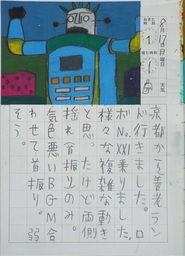 8月17日
曜日
天気
京都から養老ラン
ド行きました。ロ
ボNo.XXI乗りました。
様々な複雑な動き
と思ったけど両側
揺れ(首振り)のみ。
気色悪いBGM合
わせて首振り。弱
そう。